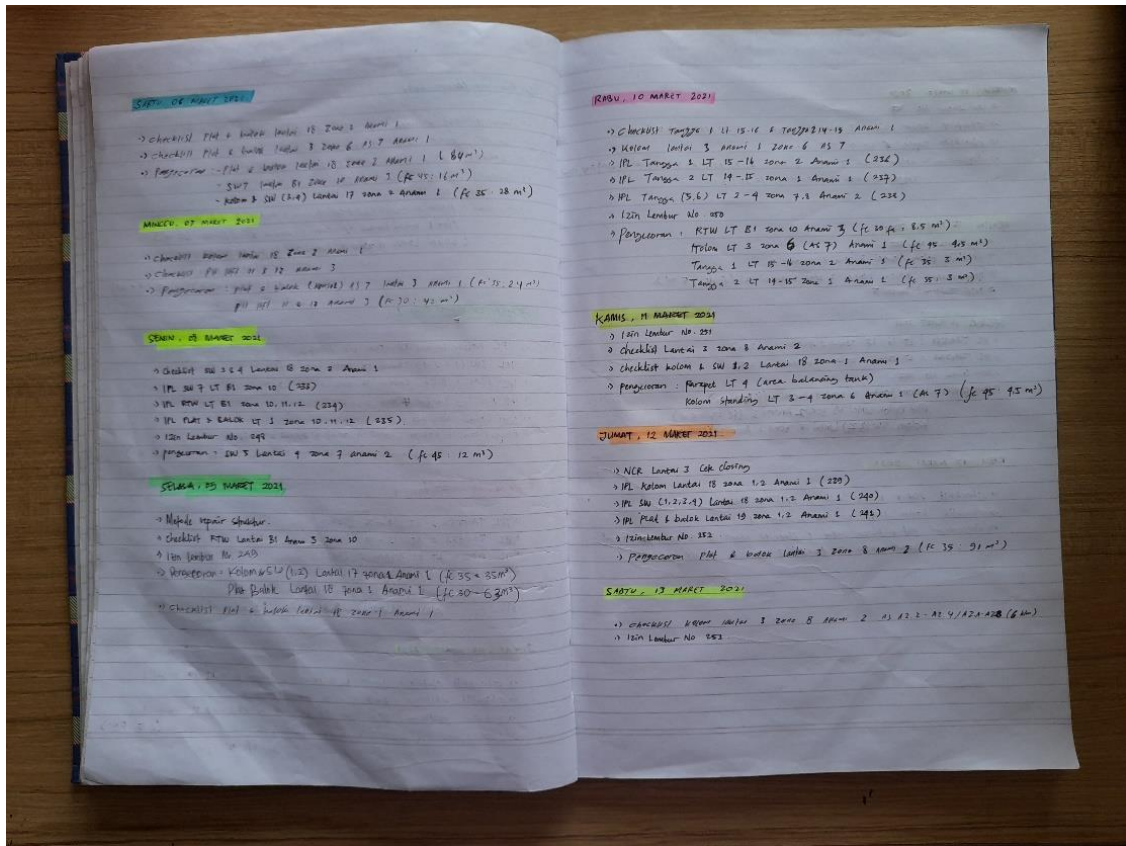 SABTU, 06 MARET 2021
-> Checklist Plat & balok lantai 18 Zona 2 Anami 1
-> Checklist Plat & balok lantai 3 zona 6 AS 7 Anami 1
-> Pengecoran : - Plat & balok lantai 18 zona 2 Anami 1 (84 m³)
- SW7 lantai B1 Zona 10 Anami 3 (fc 45 : 16 m³)
- Kolom & SW (3,4) Lantai 17 zona 2 Anami 1 (fc 35 : 28 m³)
MINGGU, 07 MARET 2021
-> Checklist kolom lantai 18 Zona 2 Anami 1
-> Checklist 11 & 12 Anami 3
-> Pengecoran : plat & balok AS 7 lantai 3 Anami 1 (fc 35 : 24 m³)
11 & 12 Anami 3 (fc 30 : 42 m³)
SENIN, 08 MARET 2021
-> Checklist SW 3 & 4 Lantai 18 zona 2 Anami 1
-> IPL SW 7 LT B1 zona 10 (233)
-> IPL RTW LT B1 zona 10, 11, 12 (234)
-> IPL PLAT & BALOK LT 1 zona 10, 11, 12 (235)
-> Izin Lembur No. 248
-> pengecoran - SW 5 Lantai 4 zona 7 anami 2 (fc 45 : 12 m³)
SELASA, 09 MARET 2021
-> Metode repair struktur.
-> Checklist RTW Lantai B1 Anami 3 zona 10
-> Izin lembur No 249
-> Pengecoran - Kolom & SW (1,2) Lantai 17 zona 1 Anami 1 (fc 35 = 35 m³)
Plat Balok Lantai 18 zona 1 Anami 1 (fc 30 - 63 m³)
-> Checklist Plat & balok lantai 18 zona 1 Anami 1
RABU, 10 MARET 2021
-> Checklist Tangga 1 LT 15-16 & Tangga 2 14-15 Anami 1
-> Kolom lantai 3 anami 1 zona 6 AS 7
-> IPL Tangga 1 LT 15-16 zona 2 Anami 1 (236)
-> IPL Tangga 2 LT 14-15 zona 1 Anami 1 (237)
-> IPL Tangga (5,6) LT 2-4 zona 7,8 Anami 2 (238)
-> Izin Lembur No. 250
-> Pengecoran : RTW LT B1 zona 10 Anami 3 (fc 30 : 8.5 m³)
Kolom LT 3 zona 6 (AS 7) Anami 1 (fc 45 : 4.5 m³)
Tangga 1 LT 15-16 zona 2 Anami 1 (fc 35 : 3 m³)
Tangga 2 LT 14-15 zona 1 Anami 1 (fc 35 : 3 m³)
KAMIS, 11 MARET 2021
-> Izin Lembur No. 251
-> Checklist Lantai 3 zona 8 Anami 2
-> Checklist kolom & SW 1,2 Lantai 18 zona 1 Anami 1
-> pengecoran : Parapet LT 4 (area balancing tank)
Kolom standing LT 3-4 zona 6 Anami 1 (AS 7) (fc 45 4.5 m³)
JUMAT, 12 MARET 2021
-> NCR Lantai 3 Cek closing
-> IPL Kolom Lantai 18 zona 1,2 Anami 1 (239)
-> IPL SW (1,2,3,4) Lantai 18 zona 1,2 Anami 1 (240)
-> IPL Plat & balok Lantai 19 zona 1,2 Anami 1 (241)
-> Izin Lembur No. 252
-> Pengecoran Plat & balok Lantai 3 zona 8 Anami 2 (fc 35 : 91 m³)
SABTU, 13 MARET 2021
-> Checklist kolom lantai 3 zona 8 Anami 2 AS
-> Izin Lembur No 253